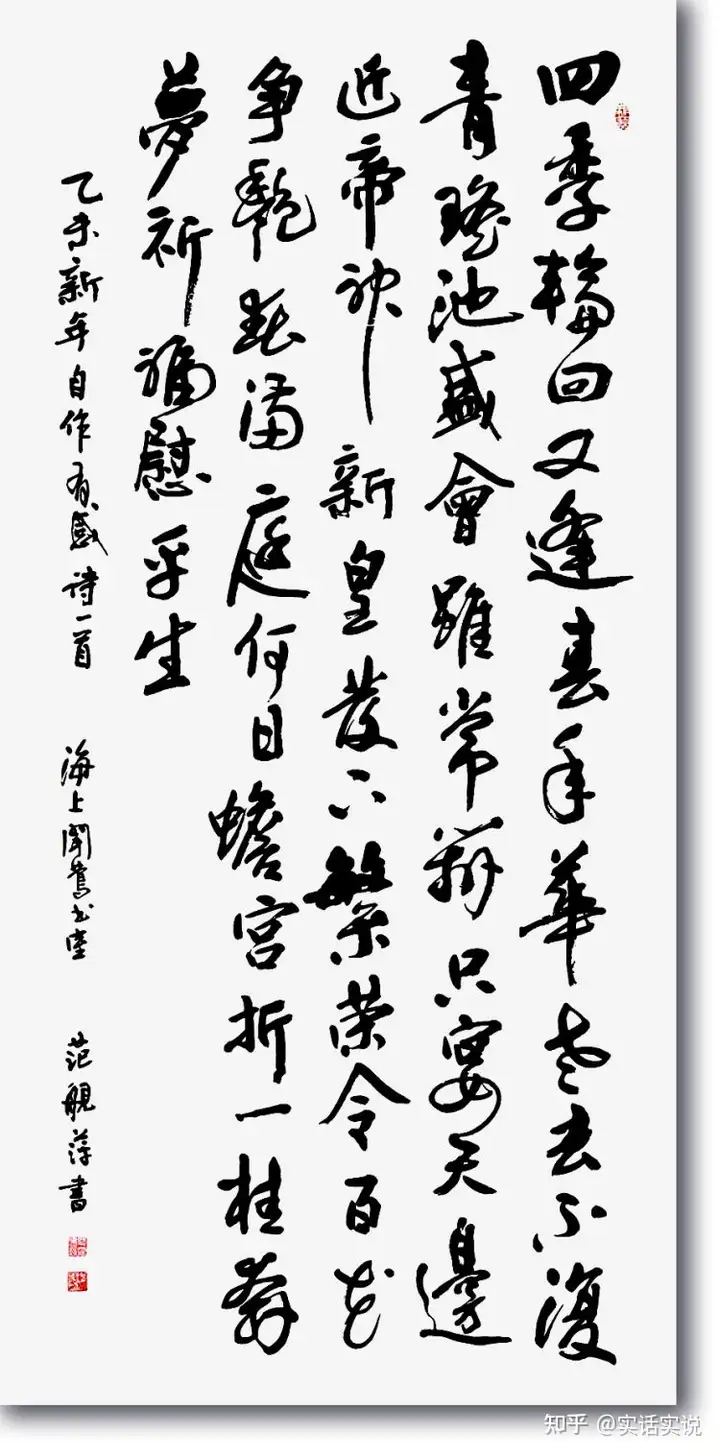 四季輪回又逢春年華老去不復
青瑤池盛會雖常辦只宴天邊
近帝神新皇發下繁榮令百花
争艷春滿庭何日蟾宮折一桂
夢祈福慰平生
乙未新年自作有感诗一首 海上闻莺书堂 范觀萍書
知乎 @实话实说